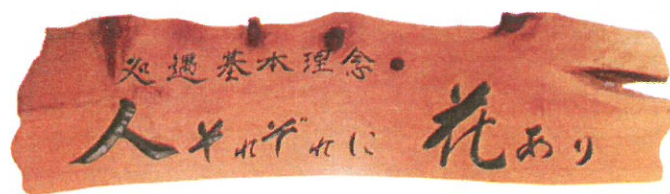 処遇基本理念
人それぞれに 花あり